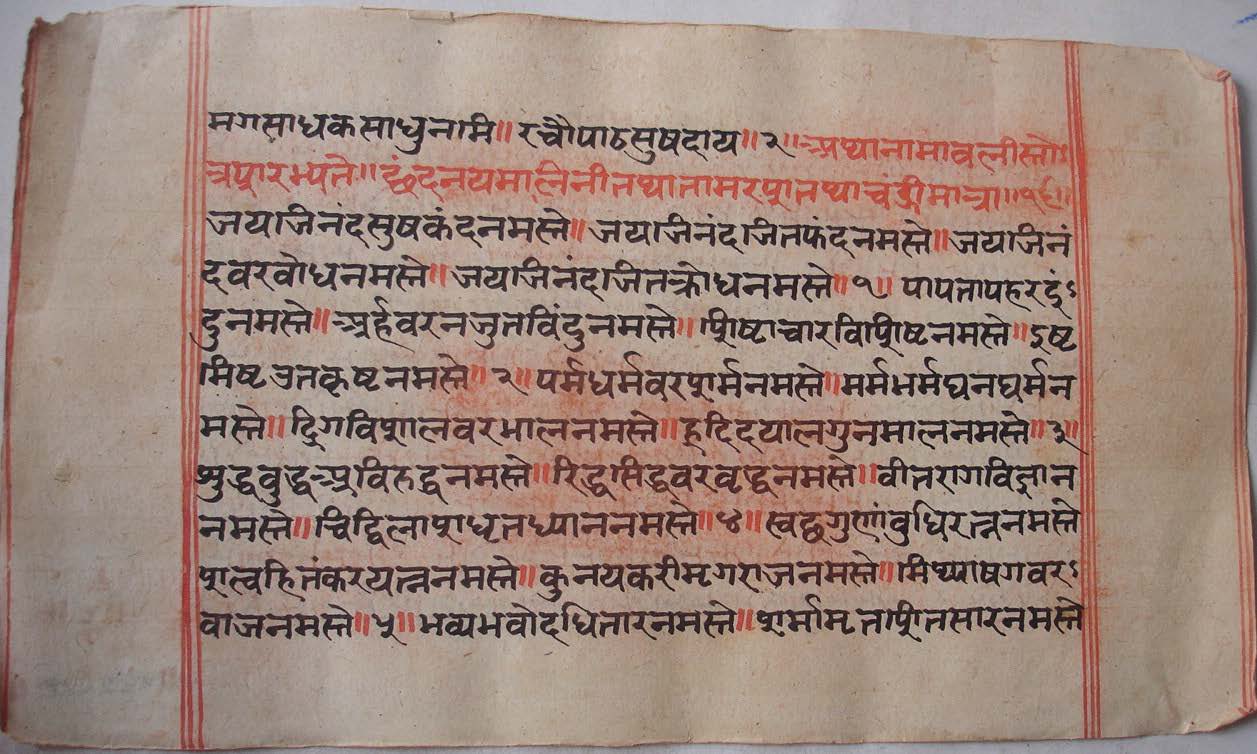 मगसाधकसाधुनामि॥ रचौपाठसुषदाय॥२॥ अथानामावलीस्तो
त्रप्रारभ्यते॥ छंदनयमालिनीतथातामरप्रातथाचंडीमात्रा॥१६॥
जयजिनंदसुषकंदनमस्ते॥ जयजिनंदजितफंदनमस्ते॥ जयजिनं
दवरवोधनमस्ते॥ जयजिनंदजितक्रोधनमस्ते॥१॥ पापतापहरइं
दुनमस्ते॥ अर्हवरनजुतविंदुनमस्ते॥ शिष्टाचारविशिष्टनमस्ते॥ इष्ट
मिष्टउतकृष्टनमस्ते॥२॥ पर्मधर्मवरशर्मनमस्ते॥ मर्मभर्मघनघर्मन
मस्ते॥ द्रिगविशालवरभालनमस्ते॥ हृदिदयालगुनमालनमस्ते॥३॥
शुद्धवुद्धअविरुद्धनमस्ते॥ रिद्धसिद्धवरवृद्धनमस्ते॥ वीतरागविज्ञान
नमस्ते॥ चिद्विलाशधृतध्याननमस्ते॥४॥ स्वछगुणांवुधिरत्ननमस्ते
शत्वहितंकरयत्ननमस्ते॥ कुनयकरीमृगराजनमस्ते॥ मिथ्याषगवर
वाजनमस्ते॥५॥ भव्यभवोदधितारनमस्ते॥ शर्मामृतशितसारनमस्ते